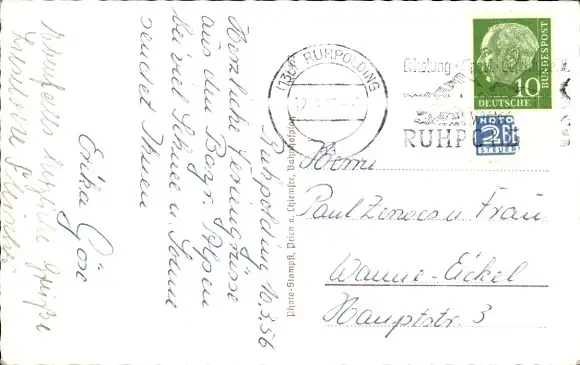 Ruhpolding 10.3.56
Herzliche Feriengrüsse
aus den Bayr. Alpen
bei viel Schnee u. Sonne
sendet Ihnen
Erika Göse
Ebenfalls herzliche Grüße
Photo-Stampfl, Prien a. Chiemsee, Bahnhofplatz
(13b) RUHPOLDING
RUHPOLDING
10
DEUTSCHE
BUNDESPOST
NOTOPFER
2
BERLIN
STEUERMARKE
Herrn
Paul Zenses u. Frau
Wanne-Eickel
Hauptstr. 3